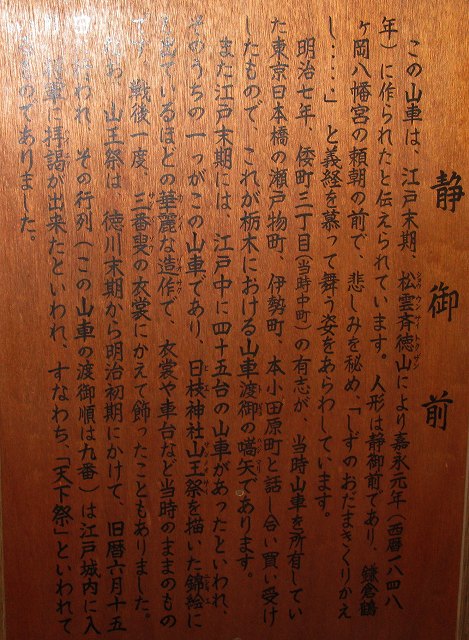 静御前
この山車は、江戸末期、松雲斉徳山により嘉永元年（西暦一八四八
年）に作られたと伝えられています。人形は静御前であり、鎌倉鶴
ヶ岡八幡宮の頼朝の前で、悲しみを秘め、「しずのおだまきくりかえ
し……」と義経を慕って舞う姿をあらわしています。
明治七年、倭町三丁目（当時中町）の有志が、当時山車を所有してい
た東京日本橋の瀬戸物町、伊勢町、本小田原町と話し合い買い受け
したもので、これが栃木における山車渡御の嚆矢であります。
また江戸末期には、江戸中に四十五台の山車があったといわれ、
そのうちの一つがこの山車であり、日枝神社山王祭を描いた錦絵に
ているほどの華麗な造作で、衣裳や車台など当時のままのもの
です。戦後一度、三番叟の衣裳にかえて飾ったこともありました。
山王祭は、徳川末期から明治初期にかけて、旧暦六月十五
行われ、その行列（この山車の渡御順は九番）は江戸城内に入
将軍に拝謁が出来たといわれ、すなわち、「天下祭」といわれて
ものでありました。